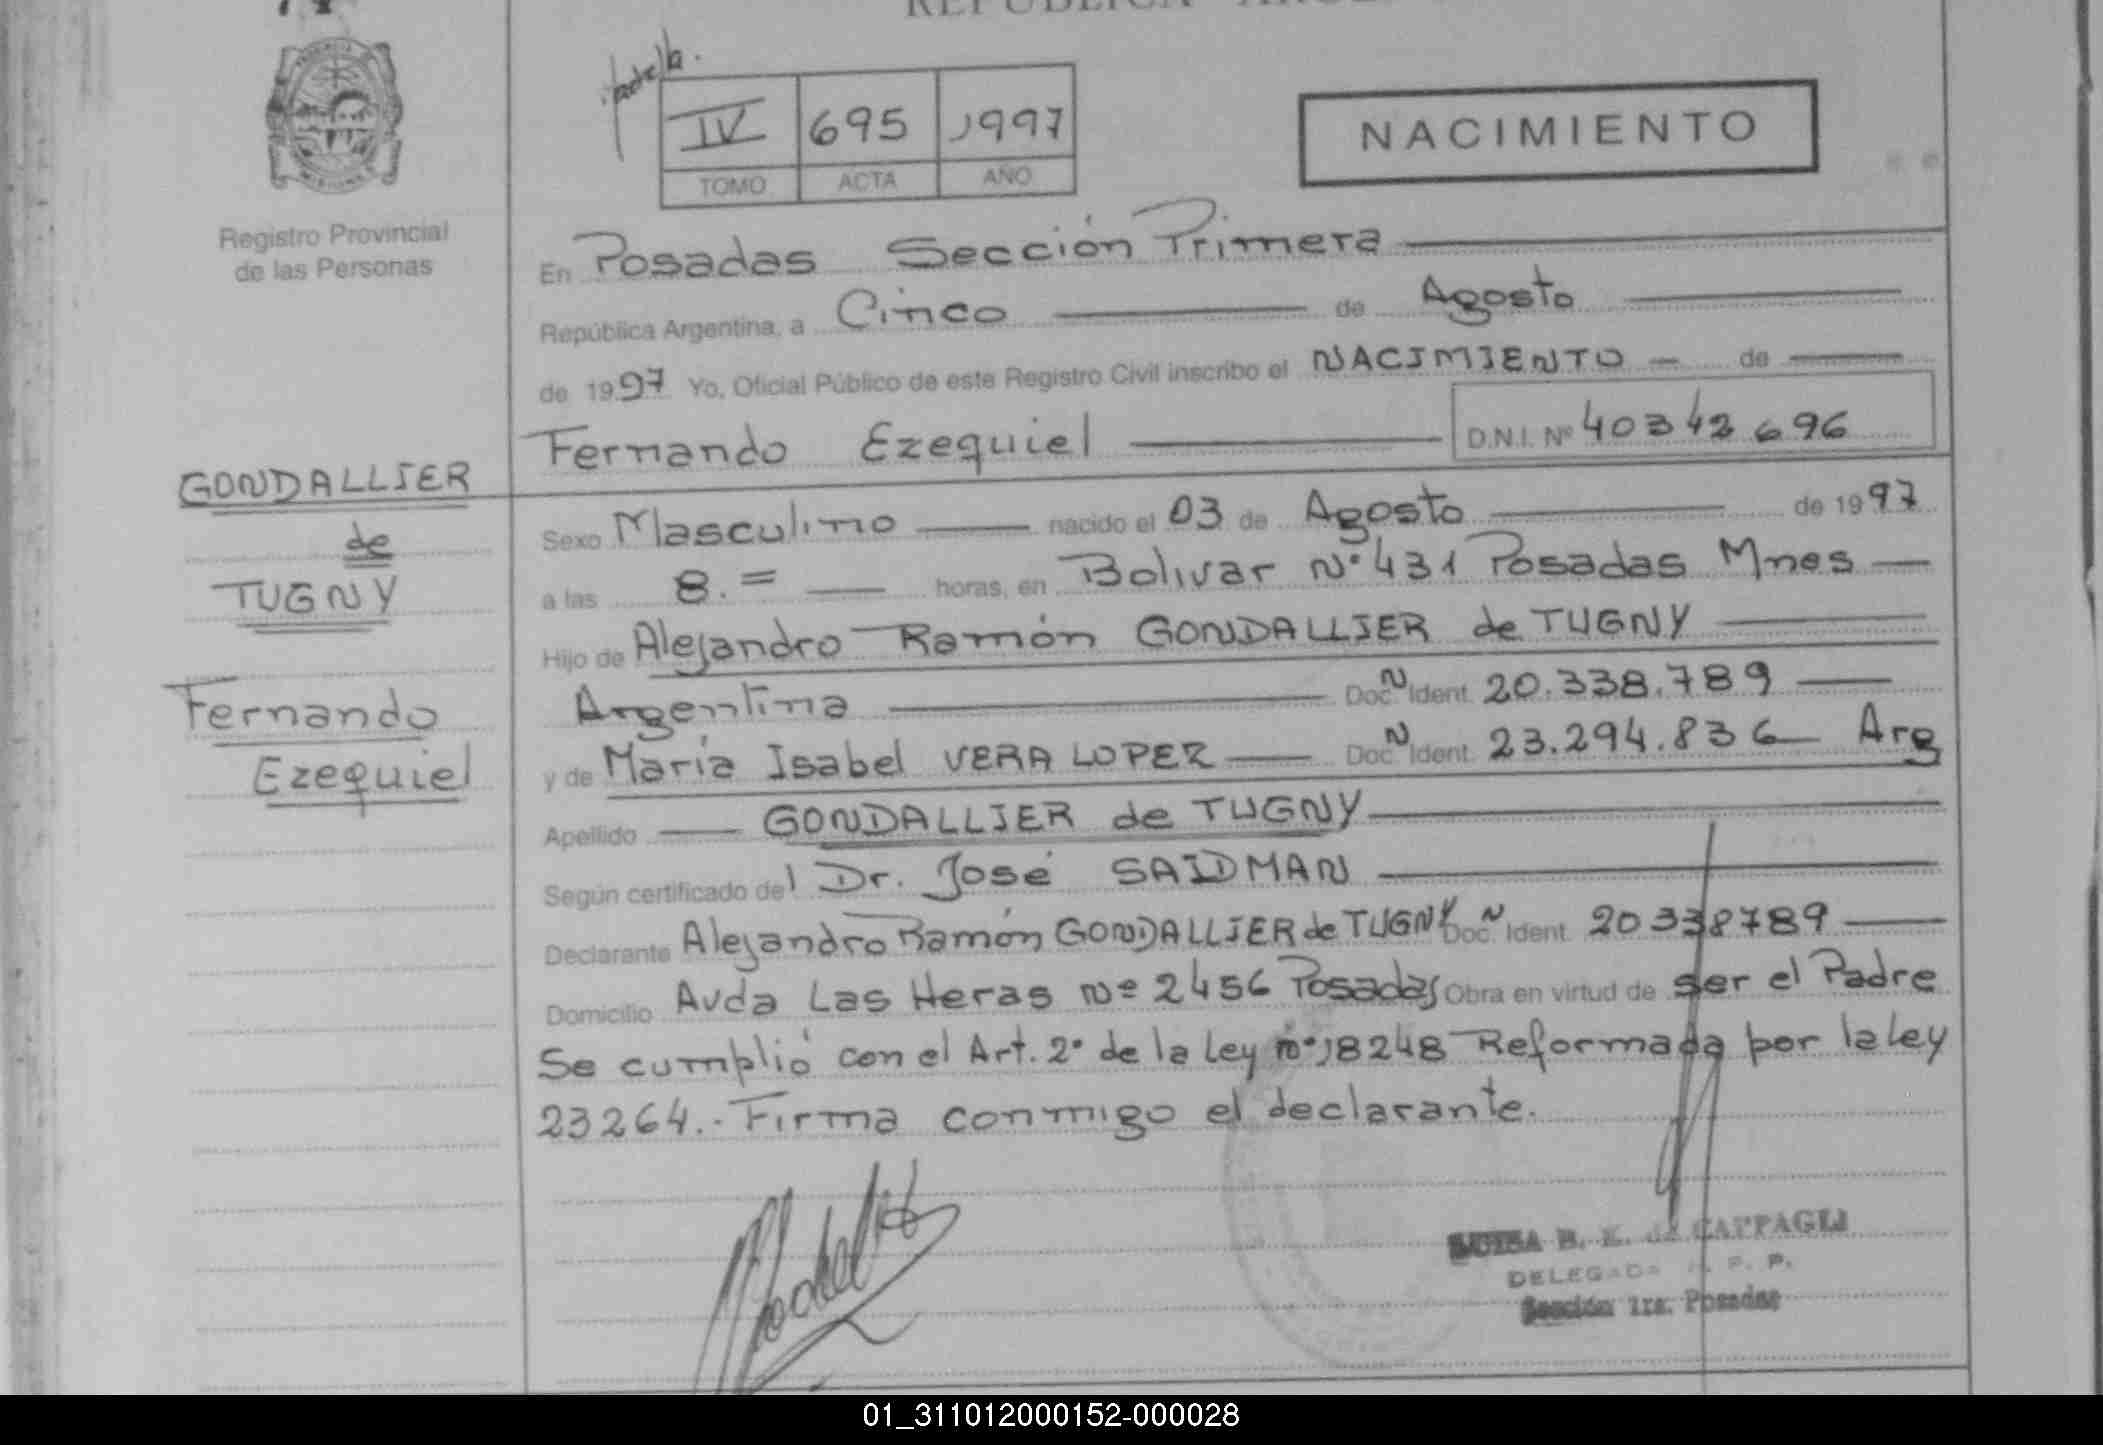 REPUBLICA
IV 695 1997
TOMO ACTA AÑO
NACIMIENTO
Registro Provincial
de las Personas
En Posadas Sección Primera
República Argentina, a Cinco de Agosto
de 1997 Yo, Oficial Público de este Registro Civil inscribo el NACIMIENTO de
Fernando Ezequiel D.N.I. Nº 40342696
GONDALLIER
de
TUGNY
Fernando
Ezequiel
Sexo Masculino nacido el 03 de Agosto de 1997
a las 8.= horas, en Bolivar Nº 431 Posadas Mnes
Hijo de Alejandro Ramón GONDALLIER de TUGNY
Argentina Doc. N Ident. 20.338.789
y de María Isabel VERA LOPEZ Doc. N Ident. 23.294.836 Arg
Apellido GONDALLIER de TUGNY
Según certificado del Dr. José SAIDMAN
Declarante Alejandro Ramón GONDALLIER de TUGNY Doc. N Ident. 20338789
Domicilio Avda Las Heras Nº 2456 Posadas Obra en virtud de ser el Padre
Se cumplió con el Art. 2º de la Ley nº 18248 Reformada por la ley
23264.- Firma conmigo el declarante.
CAPPAGLI
DELEGADA R. P. P.
Sección 1ra. Posadas
01_311012000152-000028